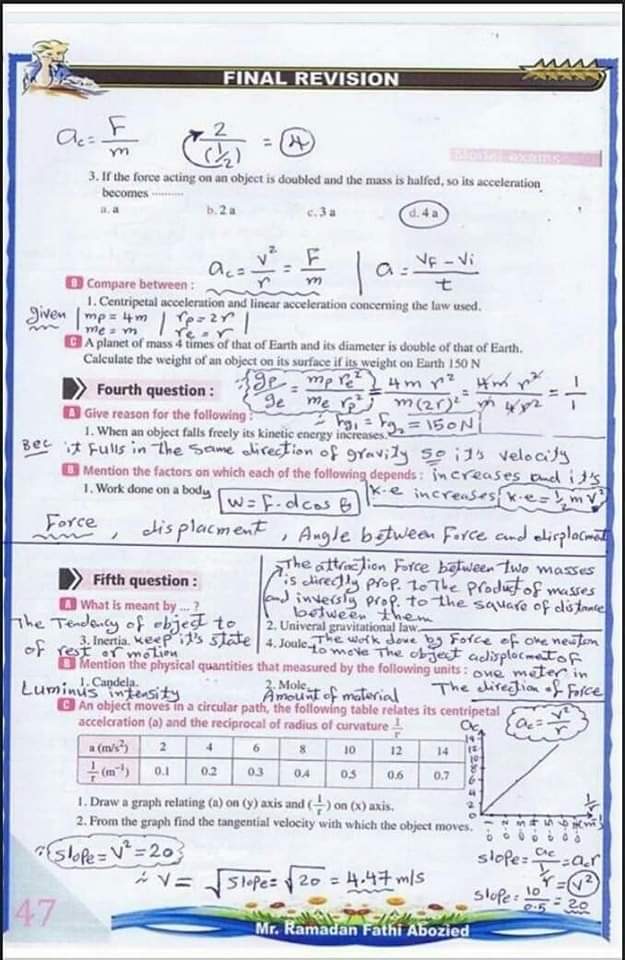 FINAL REVISION
ac = F/m  2/(1/2) = 4
Model exams
3. If the force acting on an object is doubled and the mass is halfed, so its acceleration
becomes ..........
a. a b. 2 a c. 3 a d. 4 a
ac = v²/r = F/m | a = (VF - Vi)/t
B Compare between :
1. Centripetal acceleration and linear acceleration concerning the law used.
given | mp = 4m | rp = 2r |
me = m | re = r |
C A planet of mass 4 times of that of Earth and its diameter is double of that of Earth.
Calculate the weight of an object on its surface if its weight on Earth 150 N
∵ gp/ge = mp re²/me rp² = 4m r²/m(2r)² = 4m r²/m 4r² = 1/1
∴ Fg1 = Fg2 = 150 N
Fourth question :
A Give reason for the following :
1. When an object falls freely its kinetic energy increases.
Bec it fulls in the same direction of gravity so it's velocity
increases and it's
k-e increases k-e = ½ m V²
B Mention the factors on which each of the following depends :
1. Work done on a body
W = F·d cos θ
Force, displacment, Angle between Force and displacmet
Fifth question :
The attraction Force between two masses
is directly prop. to the product of masses
and inversly prop. to the square of distance
between them
A What is meant by ... ?
The Tendency of object to
2. Univeral gravitational law.
3. Inertia. keep it's state
of rest or motion
4. Joule. The work done by Force of one newton
to move the object a displacmet of
one meter in
The direction of Force
B Mention the physical quantities that measured by the following units :
1. Candela. 2. Mole.
Luminus intensity Amount of material
C An object moves in a circular path, the following table relates its centripetal
accelcration (a) and the reciprocal of radius of curvature 1/r
a (m/s²) 2 4 6 8 10 12 14
1/r (m⁻¹) 0.1 0.2 0.3 0.4 0.5 0.6 0.7
1. Draw a graph relating (a) on (y) axis and (1/r) on (x) axis.
2. From the graph find the tangential velocity with which the object moves.
ac = v²/r
ac
14
12
10
8
6
4
2
0
1/r
∵ slope = V² = 20
∴ V = √slope = √20 = 4.47 m/s
slope = ac/(1/r) = ac r
= V²
slope = 10/0.5 = 20
47
Mr. Ramadan Fathi Abozied